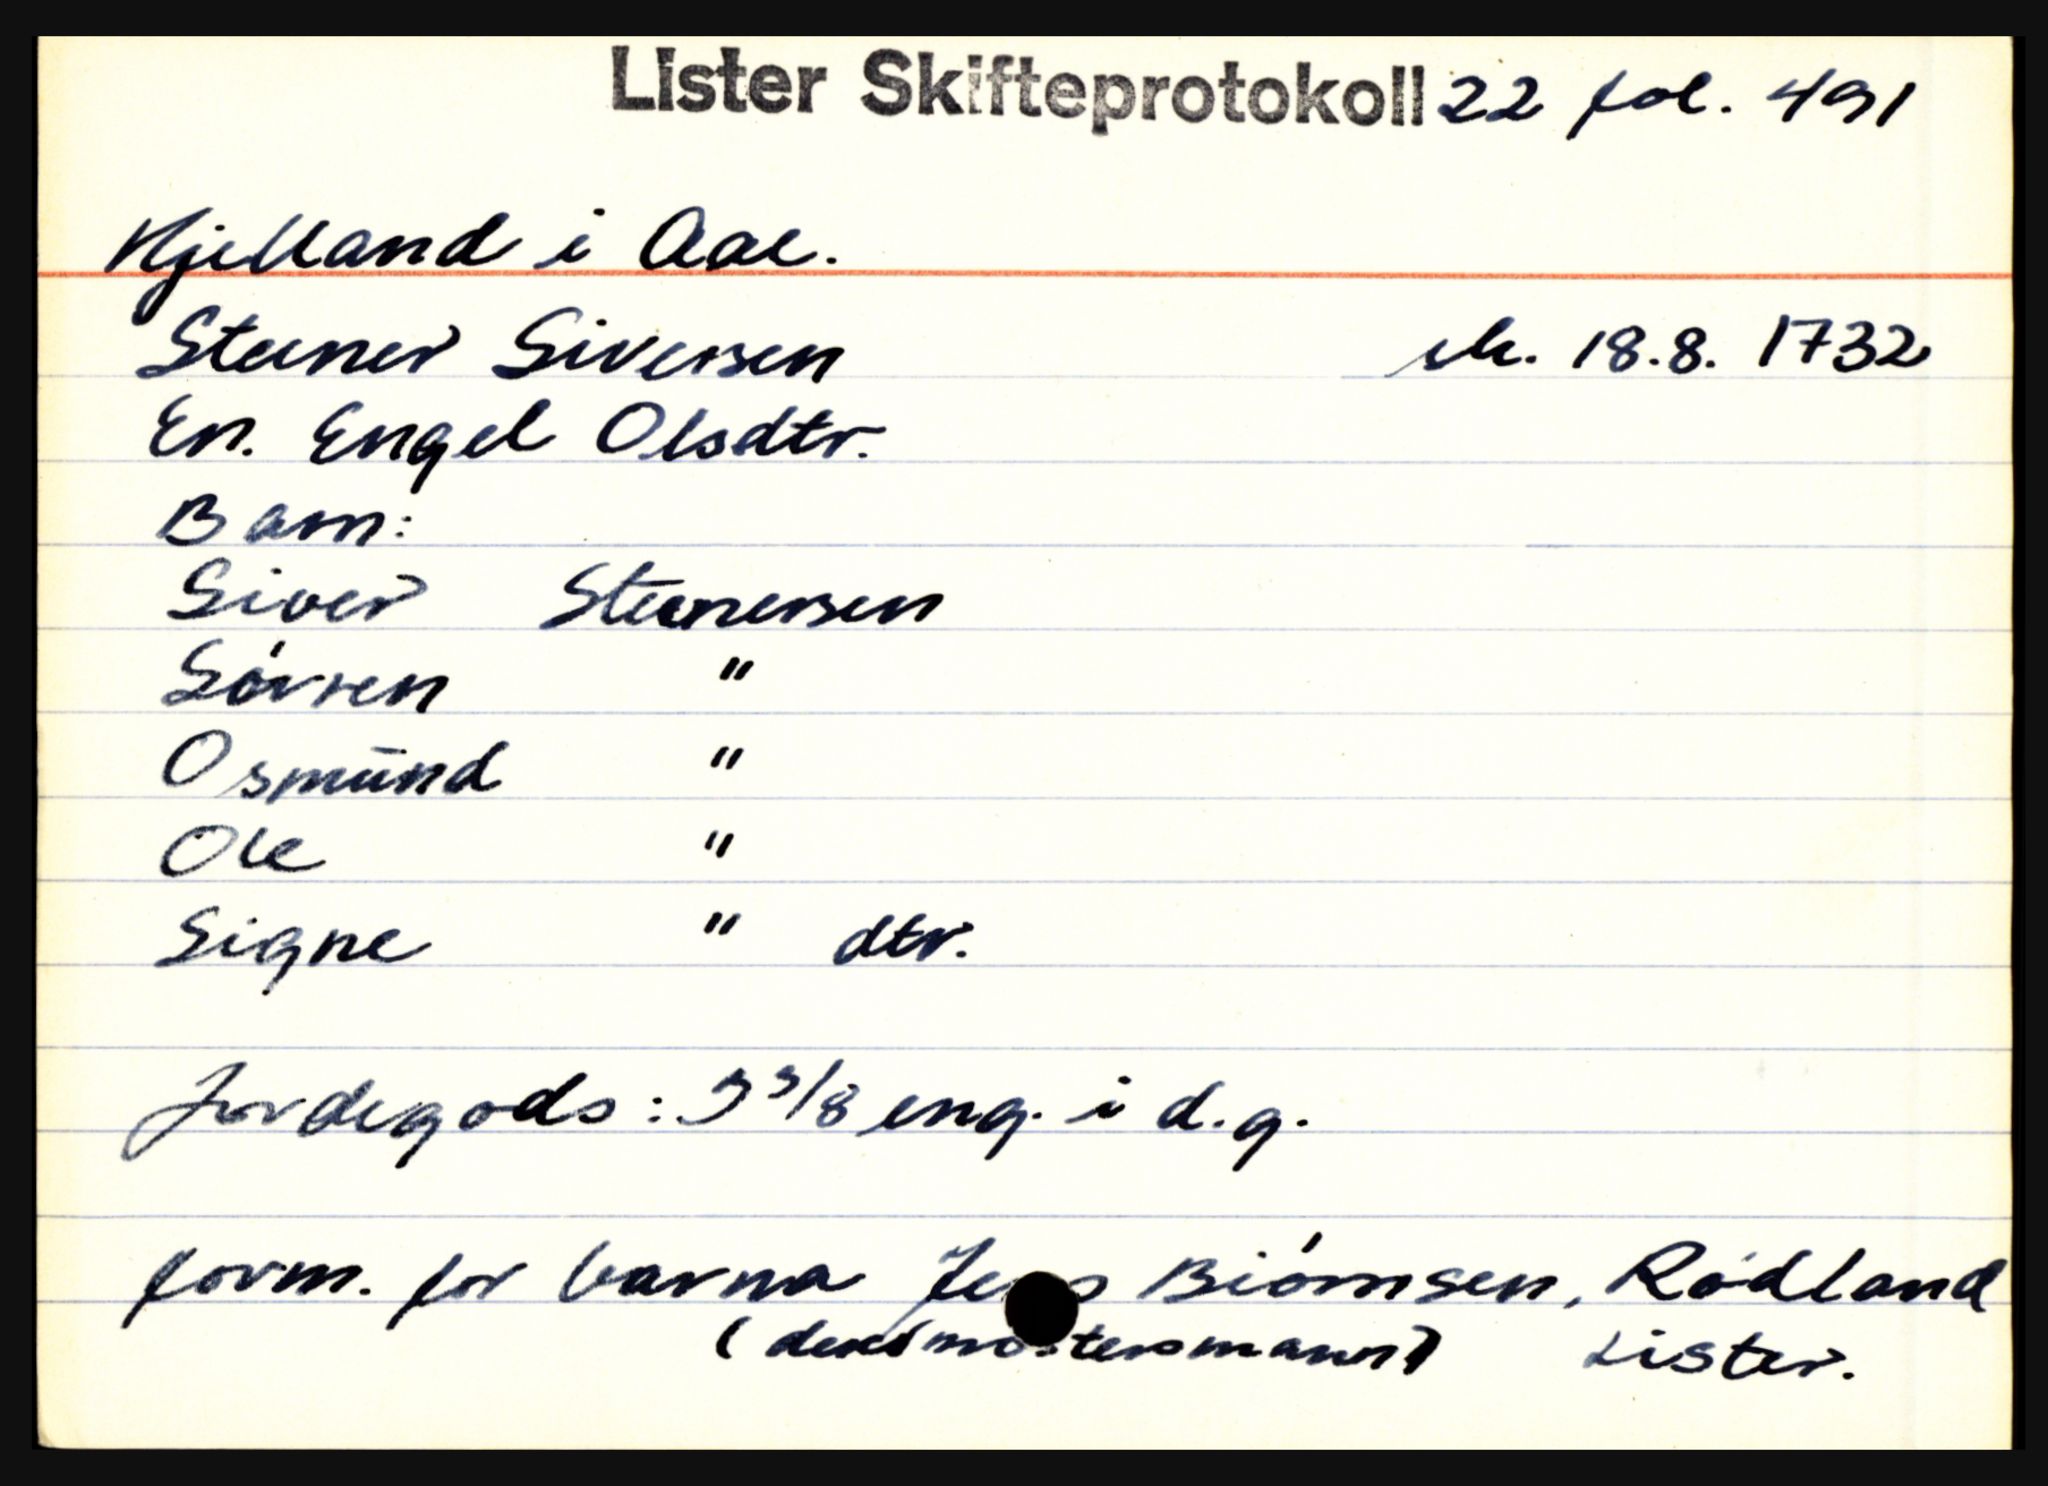 Lister Skifteprotokoll 22 fol. 491
Kjelland i Aal.
Steener Siversen sk. 18.8. 1732
En. Engel Olsdtr.
Barn:
Siver Steenersen
Sörren "
Osmund "
Ole "
Signe " dtr.
Jordegods: 3 3/8 eng. i d.g.
form. for barna Jens Biörnsen, Rödland
(deres mostersmann) Lister.